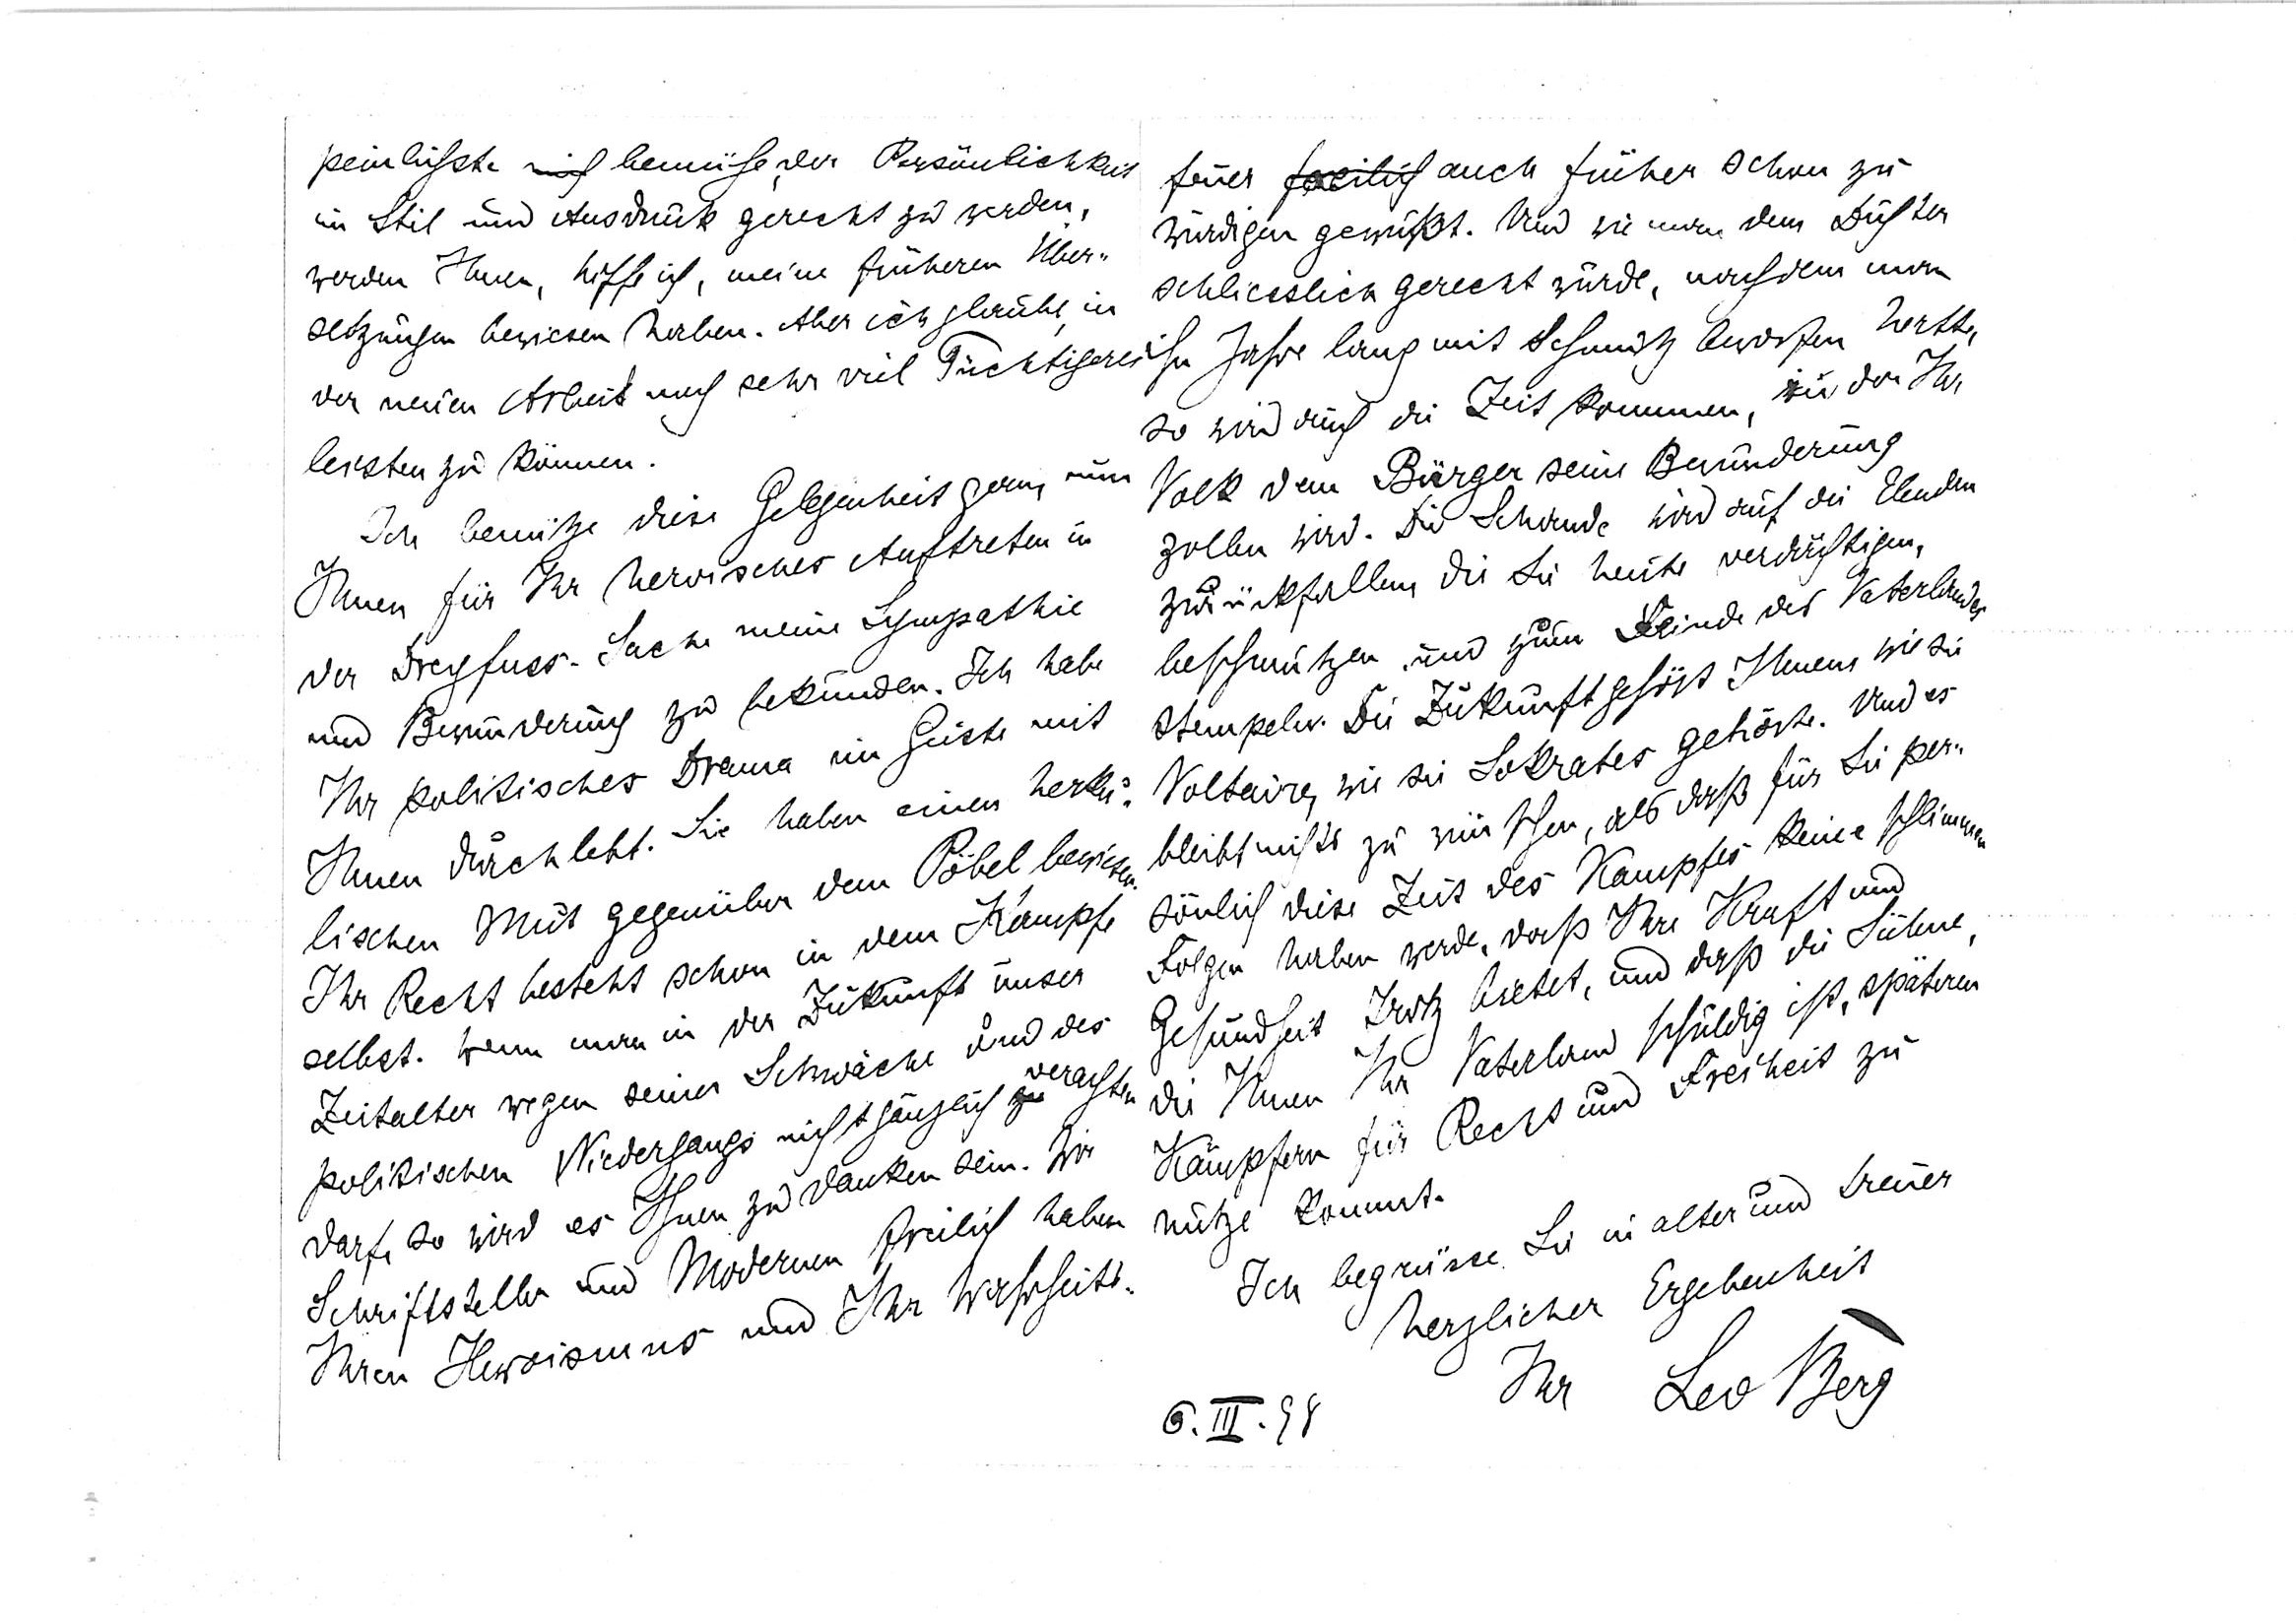 peinlichste mich bemühe, der Persönlichkeit
in Stil und Ausdruck gerecht zu werden,
werden Ihnen, hoffe ich, meine früheren Über-
setzungen bewiesen haben. Aber ich glaube, in
der neuen Arbeit noch sehr viel Tüchtigeres
leisten zu können.
Ich benütze diese Gelegenheit gern, um
Ihnen für Ihr heroisches Auftreten in
der Dreyfuss-Sache meine Sympathie
und Bewunderung zu bekunden. Ich habe
Ihr politisches Drama im Geiste mit
Ihnen durchlebt. Sie haben einen herku-
lischen Mut gegenüber dem Pöbel bewiesen.
Ihr Recht besteht schon in dem Kampfe
selbst. Wenn man in der Zukunft unser
Zeitalter wegen seiner Schwäche und des
politischen Niedergangs nicht gänzlich zu verachten
darf, so wird es Ihnen zu danken sein. Wir
Schriftsteller und Modernen freilich haben
Ihren Heroismus und Ihr Wahrheits-
feuer freilich auch früher schon zu
würdigen gewußt. Und wie man dem Dichter
schliesslich gerecht wurde, nachdem man
ihn Jahre lang mit Schmutz beworfen hatte,
so wird auch die Zeit kommen, in der Ihr
Volk dem Bürger seine Bewunderung
zollen wird. Die Schande wird auf die Elenden
zurückfallen, die Sie heute verdächtigen,
beschmutzen und zum Feinde des Vaterlandes
stempeln. Die Zukunft gehört Ihnen, wie sie
Voltaire, wie sie Sokrates gehörte. Und es
bleibt nichts zu wünschen, als daß für Sie per-
sönlich diese Zeit des Kampfes keine schlimmen
Folgen haben werde, daß Ihre Kraft und
Gesundheit Trotz bietet, und daß die Sühne,
die Ihnen Ihr Vaterland schuldig ist, späteren
Kämpfern für Recht und Freiheit zu
nütze kommt.
Ich begrüsse Sie in alter und treuer
herzlicher Ergebenheit
Ihr Leo Berg
6. III. 98